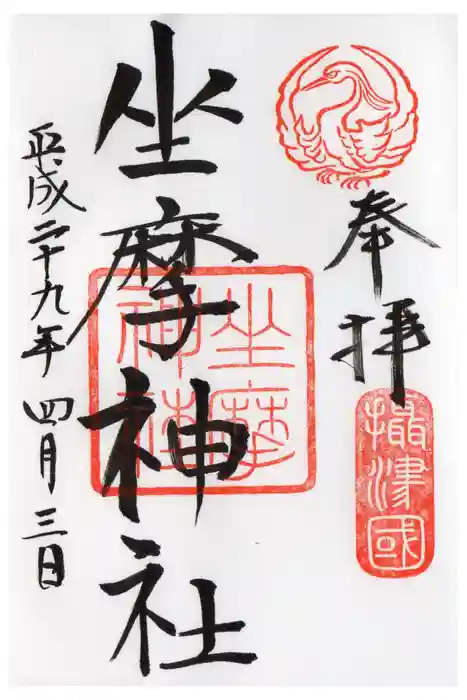 奉拝
摂津國
坐摩神社
坐摩神社
平成二十九年四月三日